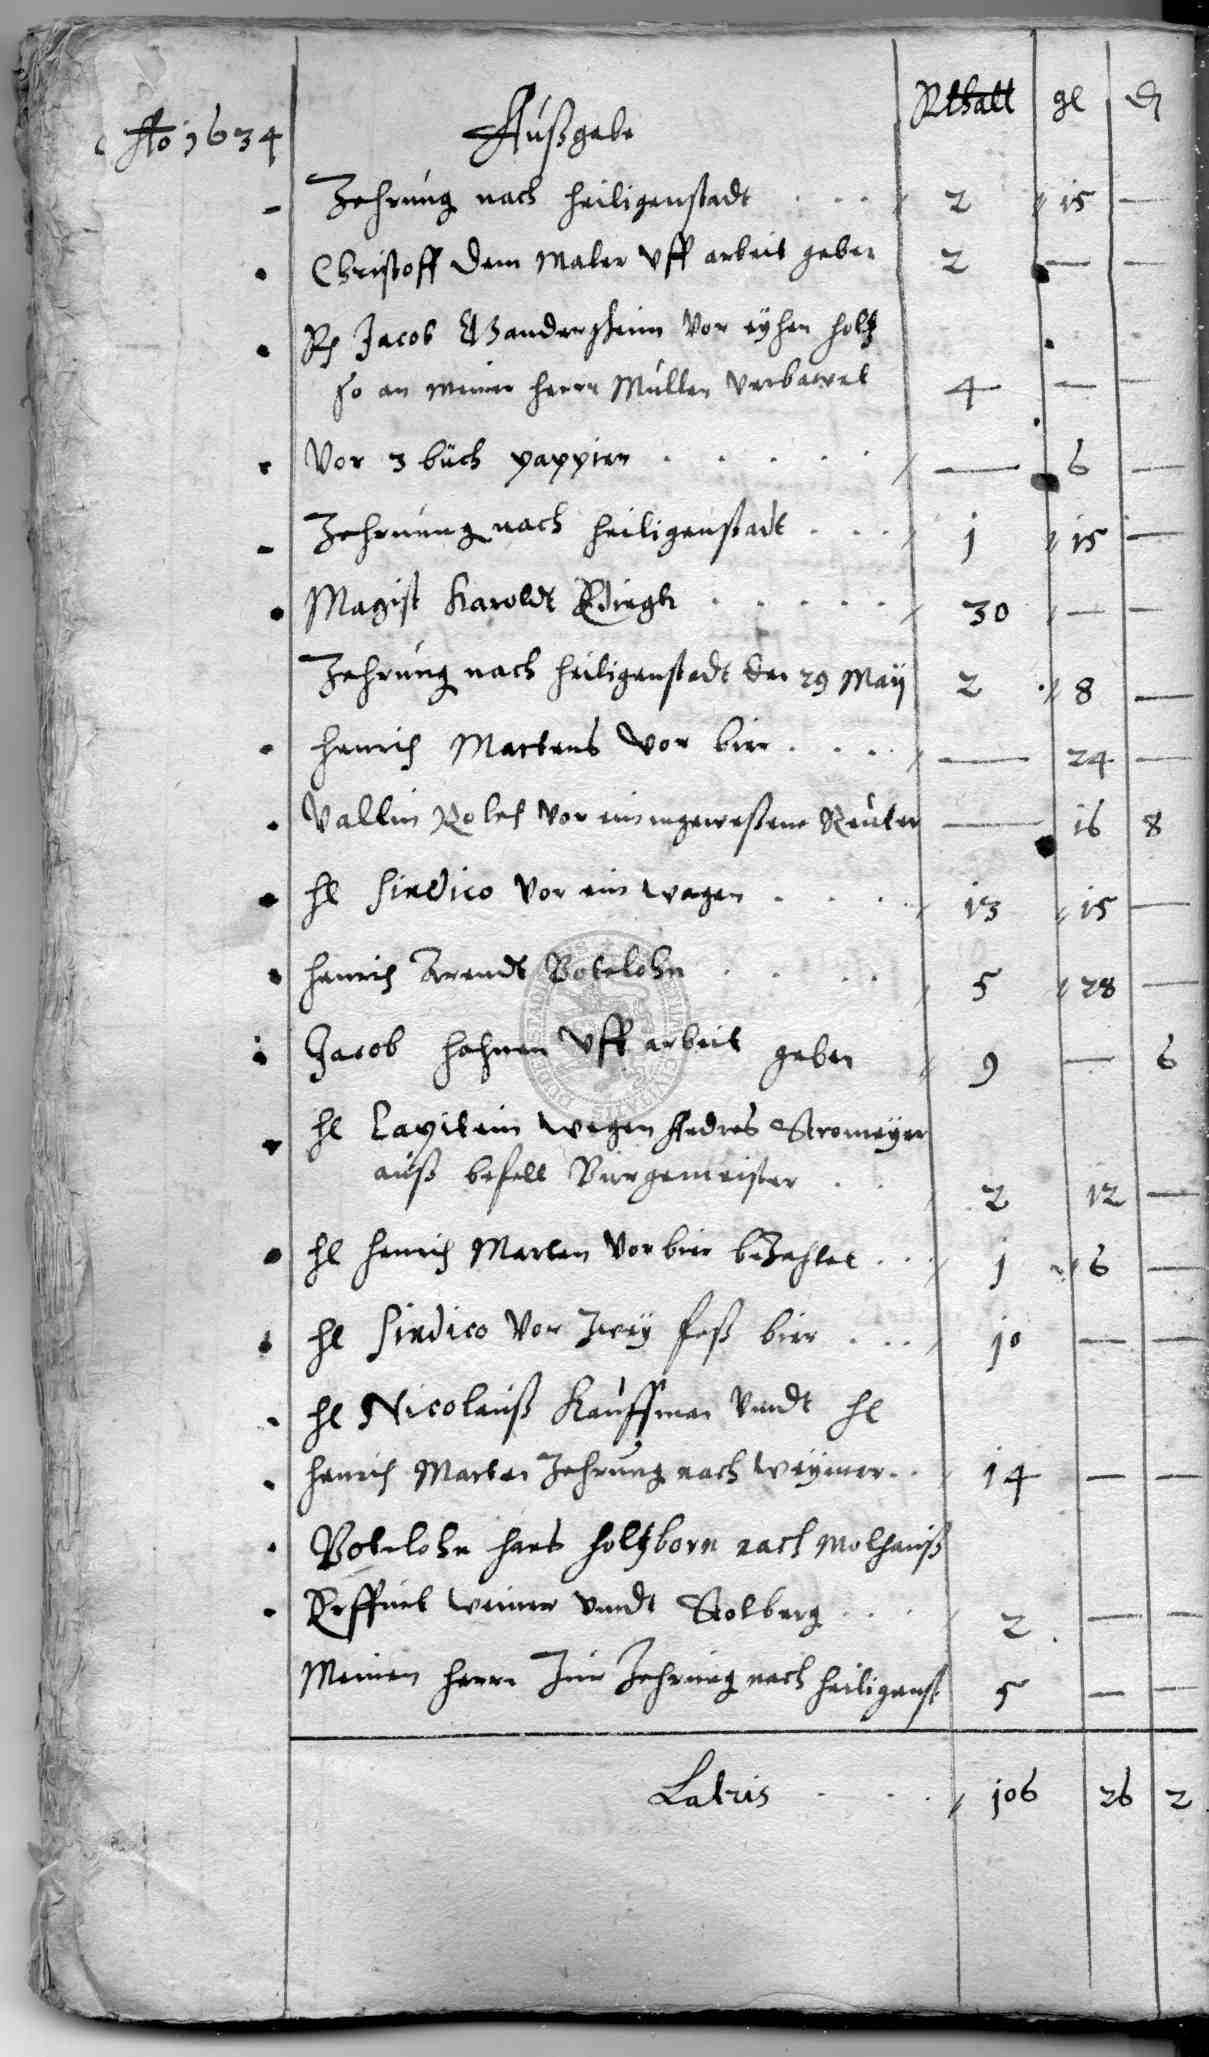 Ao 1634 Außgabe Rthall gl ₰
Zehrung nach heiligenstadt . . . 2 15 —
Christoff dem Maler vff arbeit geben 2 — —
Jacob vor eychen holtz
so an meiner herrn Mullen verbawet 4 — —
Vor 3 büch pappier . . . . . — 6 —
Zehrung nach heiligenstadt . . . 1 15 —
Magist Karoldt . . . . . 30 — —
Zehrung nach heiligenstadt den 29 Maÿ 2 8 —
henrich Martens vor bier . . . . — 24 —
Valtin vor Reuter — 16 8
hl Sindico vor ein wagen . . . . 13 15 —
henrich Arendt Botelohn . . . . 5 28 —
Jacob hahnen vff arbeit geben 9 — 6
hl Capitein wegen Andres Stromeyer
auß befell Burgemeister . . 2 12 —
hl henrich Marten vor bier bezahlet . . 1 6 —
hl Sindico vor zweÿ faß bier . . . . 10 — —
hl Nicolauß Kauffman vnndt hl
henrich Marten Zehrung nach weÿmer . . 14 — —
Botelohn hans holtzborn nach Molhauß
Erffurt weimer vnndt Stolberg . . . . 2 — —
Meinen herrn zur Zehrung nach heiligenst 5 — —
Latris . . . 106 26 2